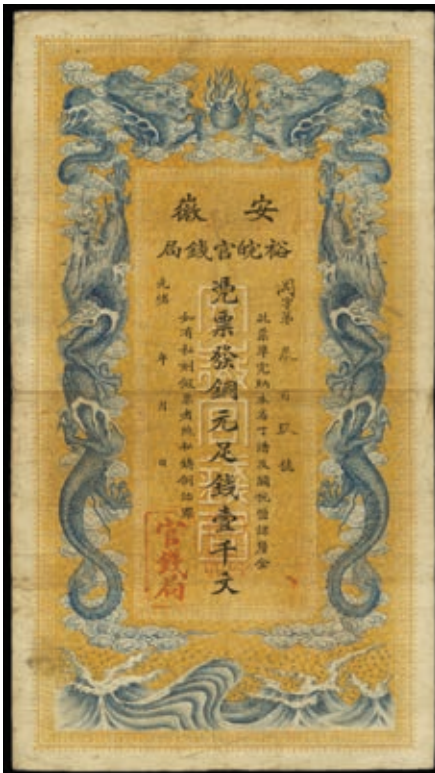 安徽
裕皖官錢局
字第 叁百 號
此票準完納本省丁漕及關稅鹽課釐金
憑票發銅元足錢壹千文
如有私刻假票者照私鑄例治罪
光緒 年 月 日
官錢局